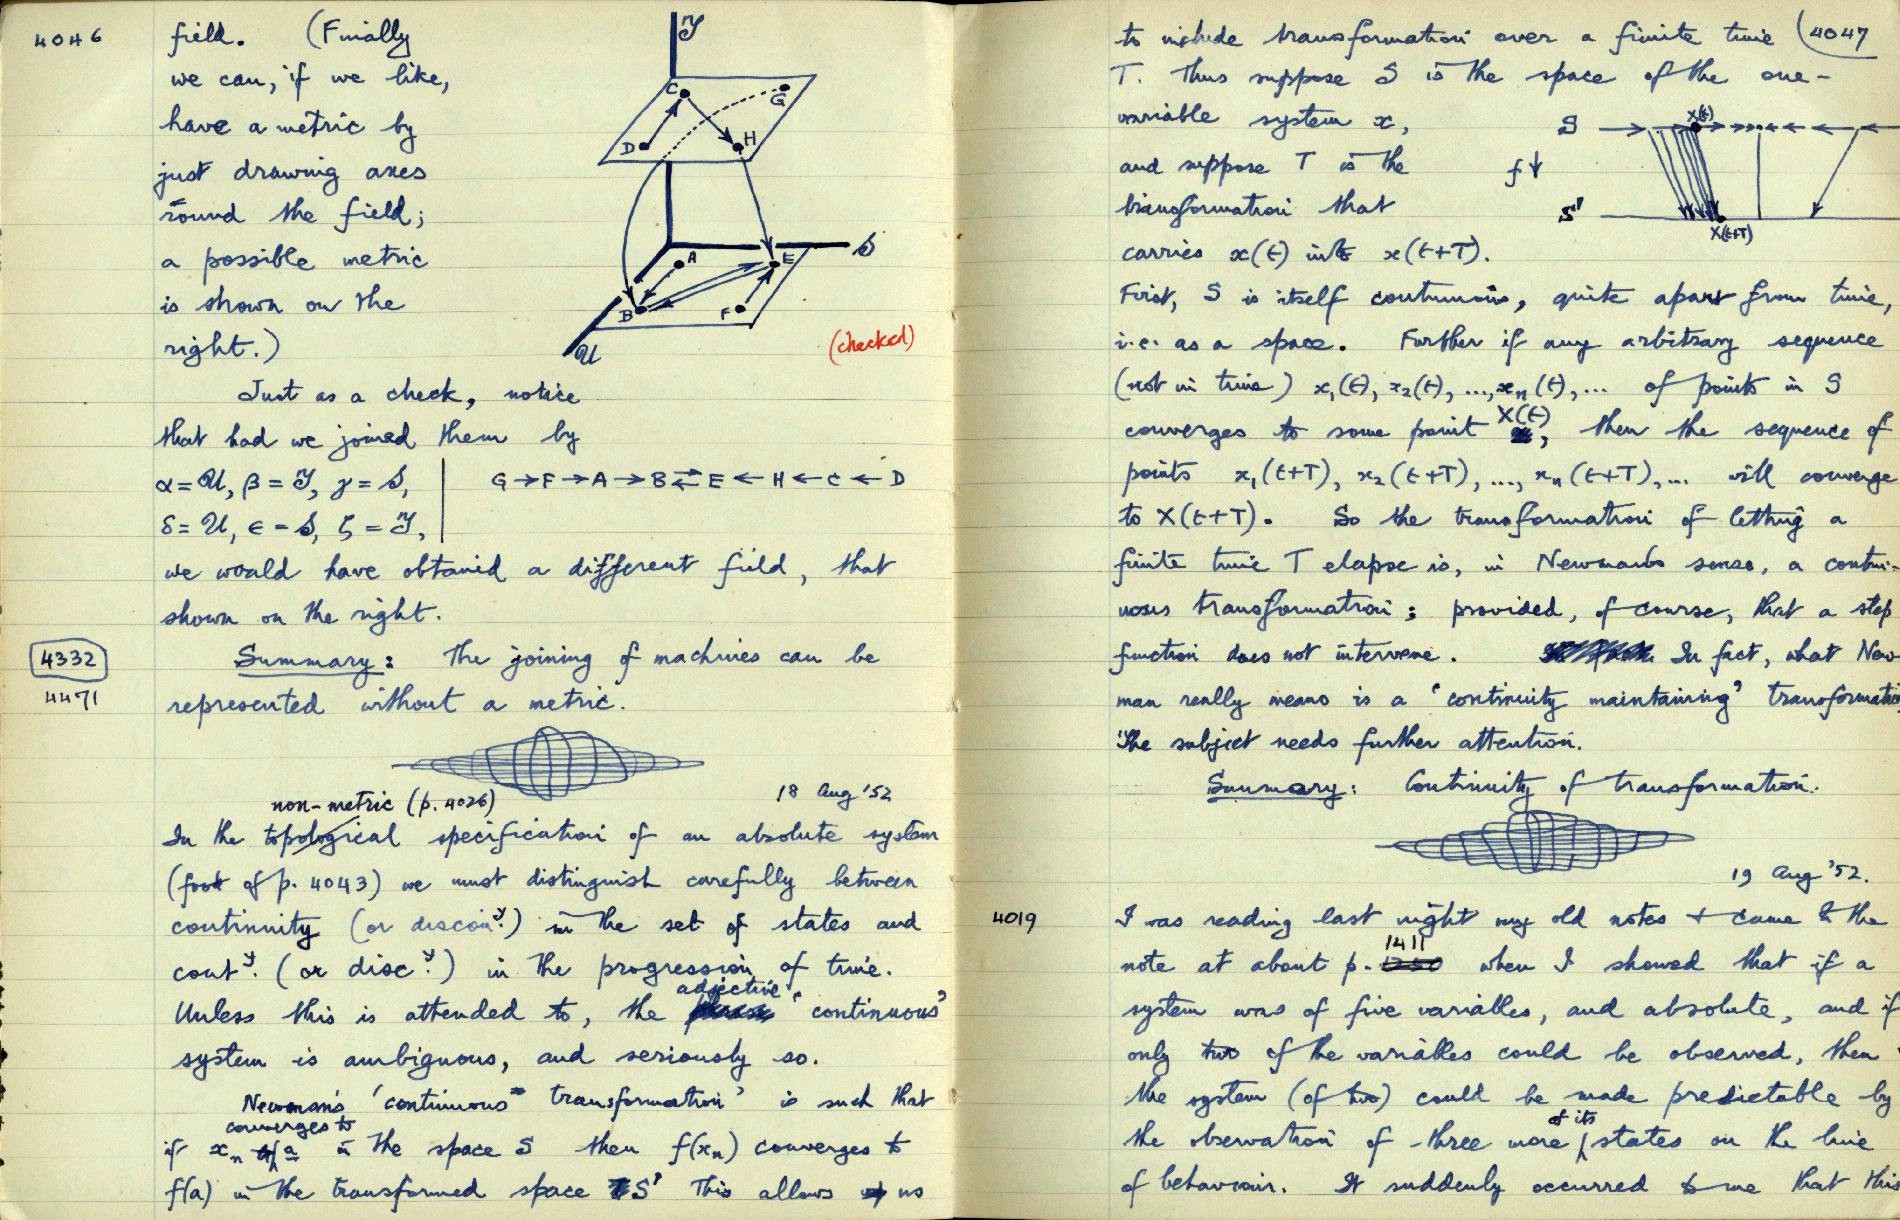 4046
field. (Finally
we can, if we like,
have a metric by
just drawing axes
round the field;
a possible metric
is shown on the
right.)
T
C
G
D
H
S
A
E
B
F
U
(checked)
Just as a check, notice
that had we joined them by
α=U, β=T, γ=S,
δ=U, ε=S, ζ=T,
G→F→A→B⇄E←H←C←D
we would have obtained a different field, that
shown on the right.
4332
4471
Summary: The joining of machines can be
represented without a metric.
18 Aug '52
non-metric (p. 4026)
In the topological specification of an absolute system
(foot of p. 4043) we must distinguish carefully between
continuity (or discony.) in the set of states and
conty. (or discy.) in the progression of time.
adjective
Unless this is attended to, the 'continuous'
system is ambiguous, and seriously so.
Newman's 'continuous transformation' is such that
converges to
if xn a in the space S then f(xn) converges to
f(a) in the transformed space S' This allows us
4047
to include transformation over a finite time
T. Thus suppose S is the space of the one-
variable system x,
and suppose T is the
transformation that
carries x(t) into x(t+T).
X(t)
S
f↓
S'
X(t+T)
First, S is itself continuous, quite apart from time,
i.e. as a space. Further if any arbitrary sequence
(not in time) x1(t), x2(t), ..., xn(t), ... of points in S
X(t)
converges to some point , then the sequence of
points x1(t+T), x2(t+T), ..., xn(t+T), ... will converge
to X(t+T). So the transformation of letting a
finite time T elapse is, in Newman's sense, a contin-
uous transformation; provided, of course, that a step
function does not intervene. In fact, what New-
man really means is a 'continuity maintaining' transformation
The subject needs further attention.
Summary: Continuity of transformation.
19 Aug '52.
4019
I was reading last night my old notes + came to the
1411
note at about p. 1250 when I showed that if a
system was of five variables, and absolute, and if
only two of the variables could be observed, then
the system (of two) could be made predictable by
of its
the observation of three more states on the line
of behaviour. It suddenly occurred to me that this